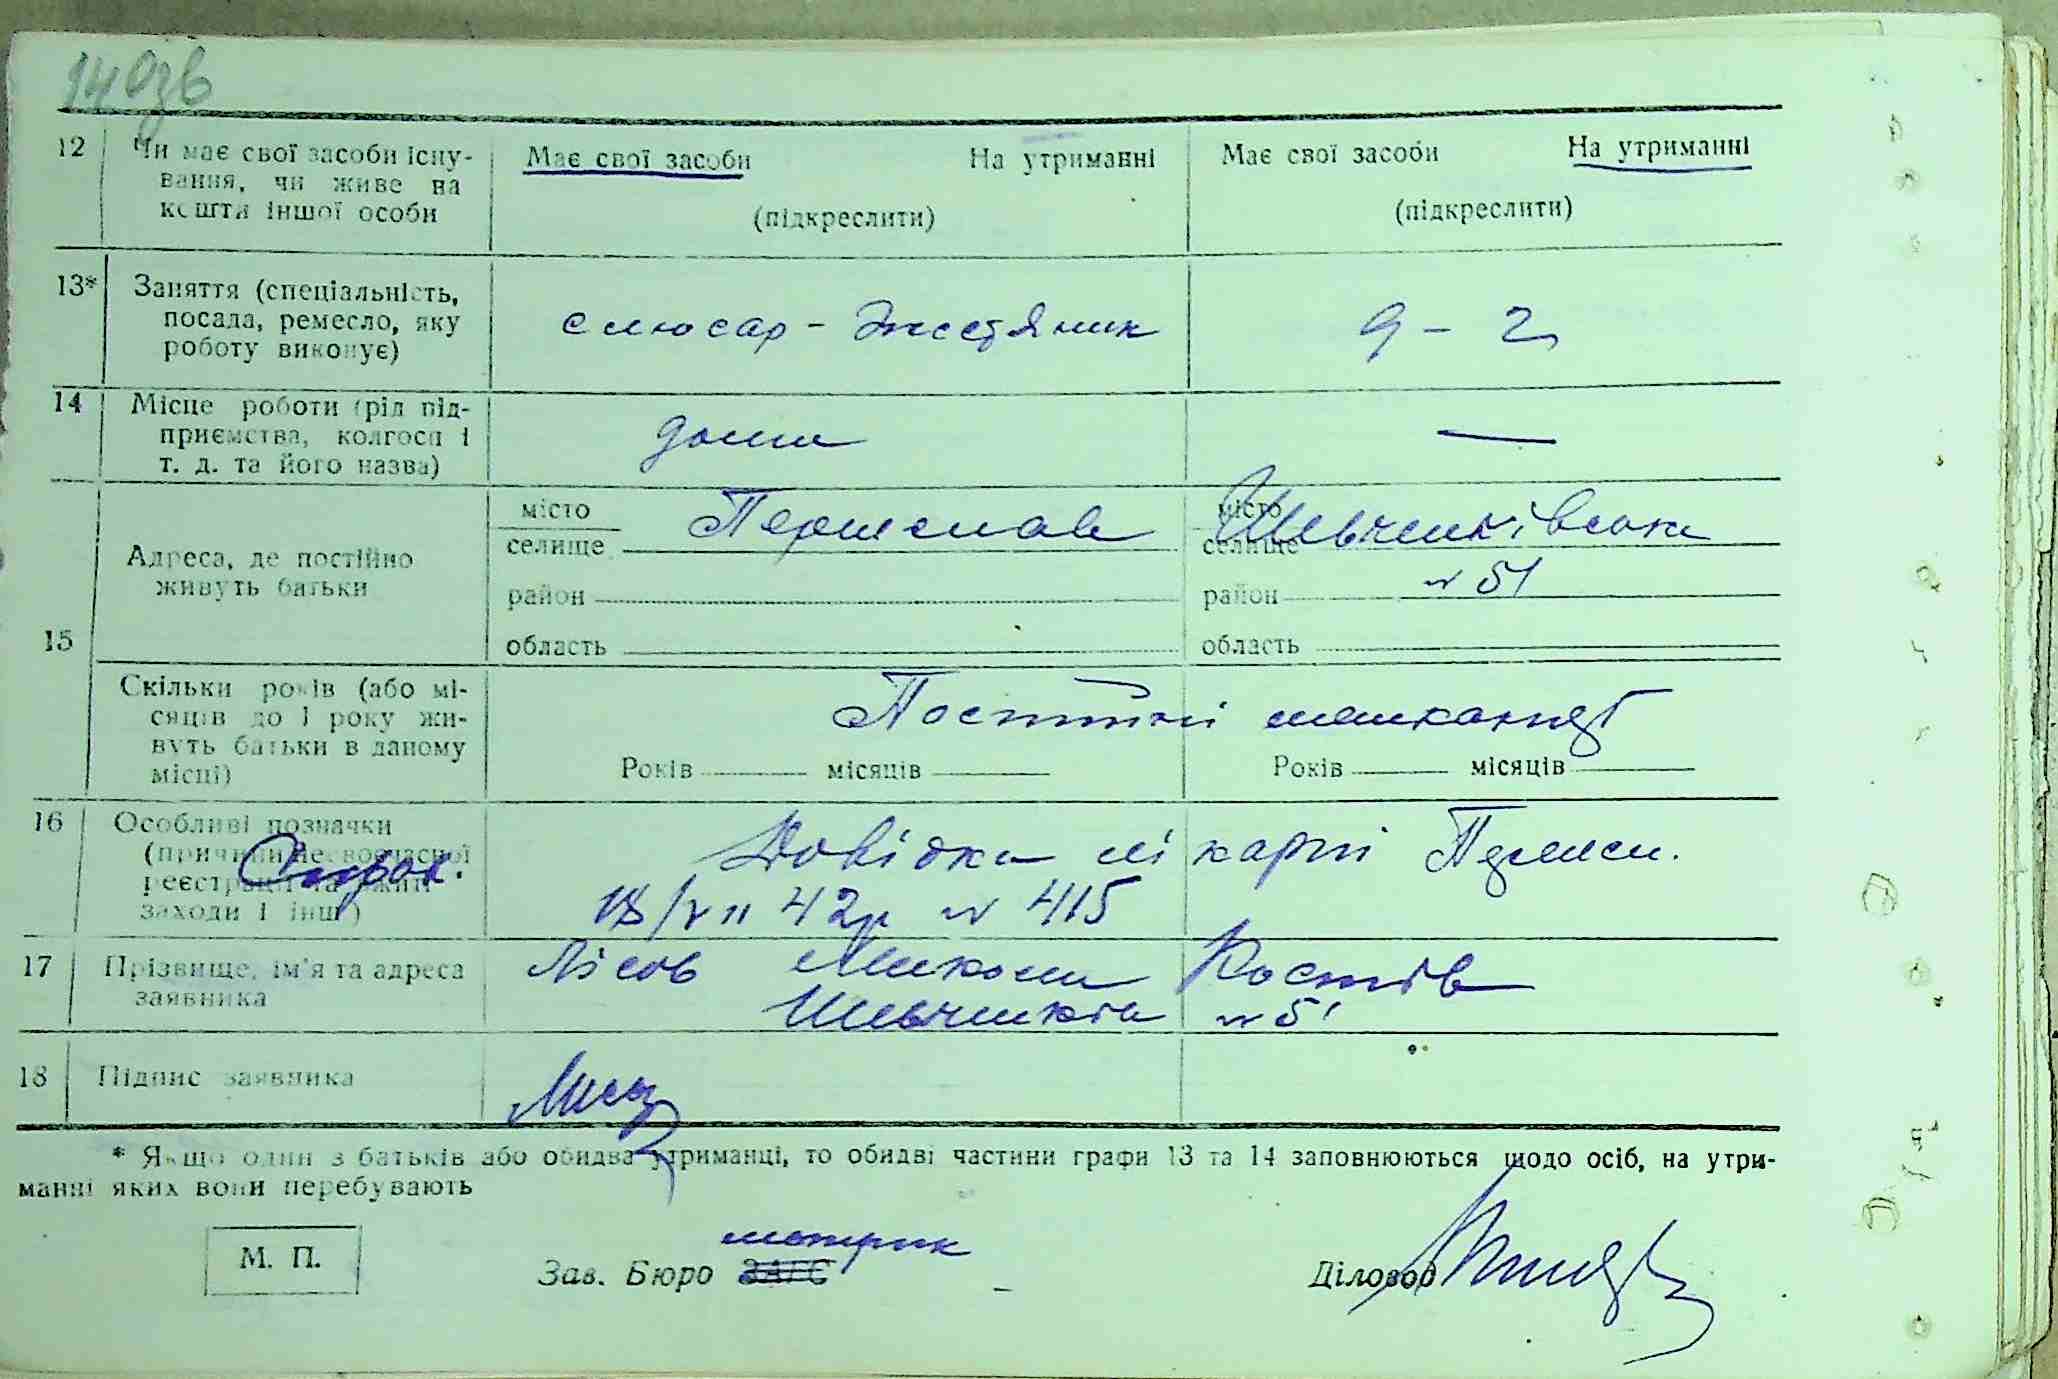 140зв
12 Чи має свої засоби існу-
вання, чи живе на
кошти іншої особи
Має свої засоби На утриманні
(підкреслити)
Має свої засоби На утриманні
(підкреслити)
13* Заняття (спеціальність,
посада, ремесло, яку
роботу виконує)
слюсар - жестяник
14 Місце роботи (рід під-
приємства, колгосп і
т. д. та його назва)
дома
—
15 Адреса, де постійно
живуть батьки
місто
селище
район
область
місто Шевченківська
селище
район № 51
область
Скільки років (або мі-
сяців до 1 року жи-
вуть батьки в даному
місці)
Постійні мешканці
Років місяців
Років місяців
16 Особливі позначки
(причини несвоєчасної
реєстрації та вжиті
заходи і інш)
Довідка лікарні
18/VII 42р № 415
17 Прізвище, ім'я та адреса
заявника
Лісов Микола Костів
Шевченків № 51
18 Підпис заявника
* Якщо один з батьків або обидва утриманці, то обидві частини графи 13 та 14 заповнюються щодо осіб, на утри-
манні яких вони перебувають
М. П.
матрик
Зав. Бюро ЗАГС
Діловод